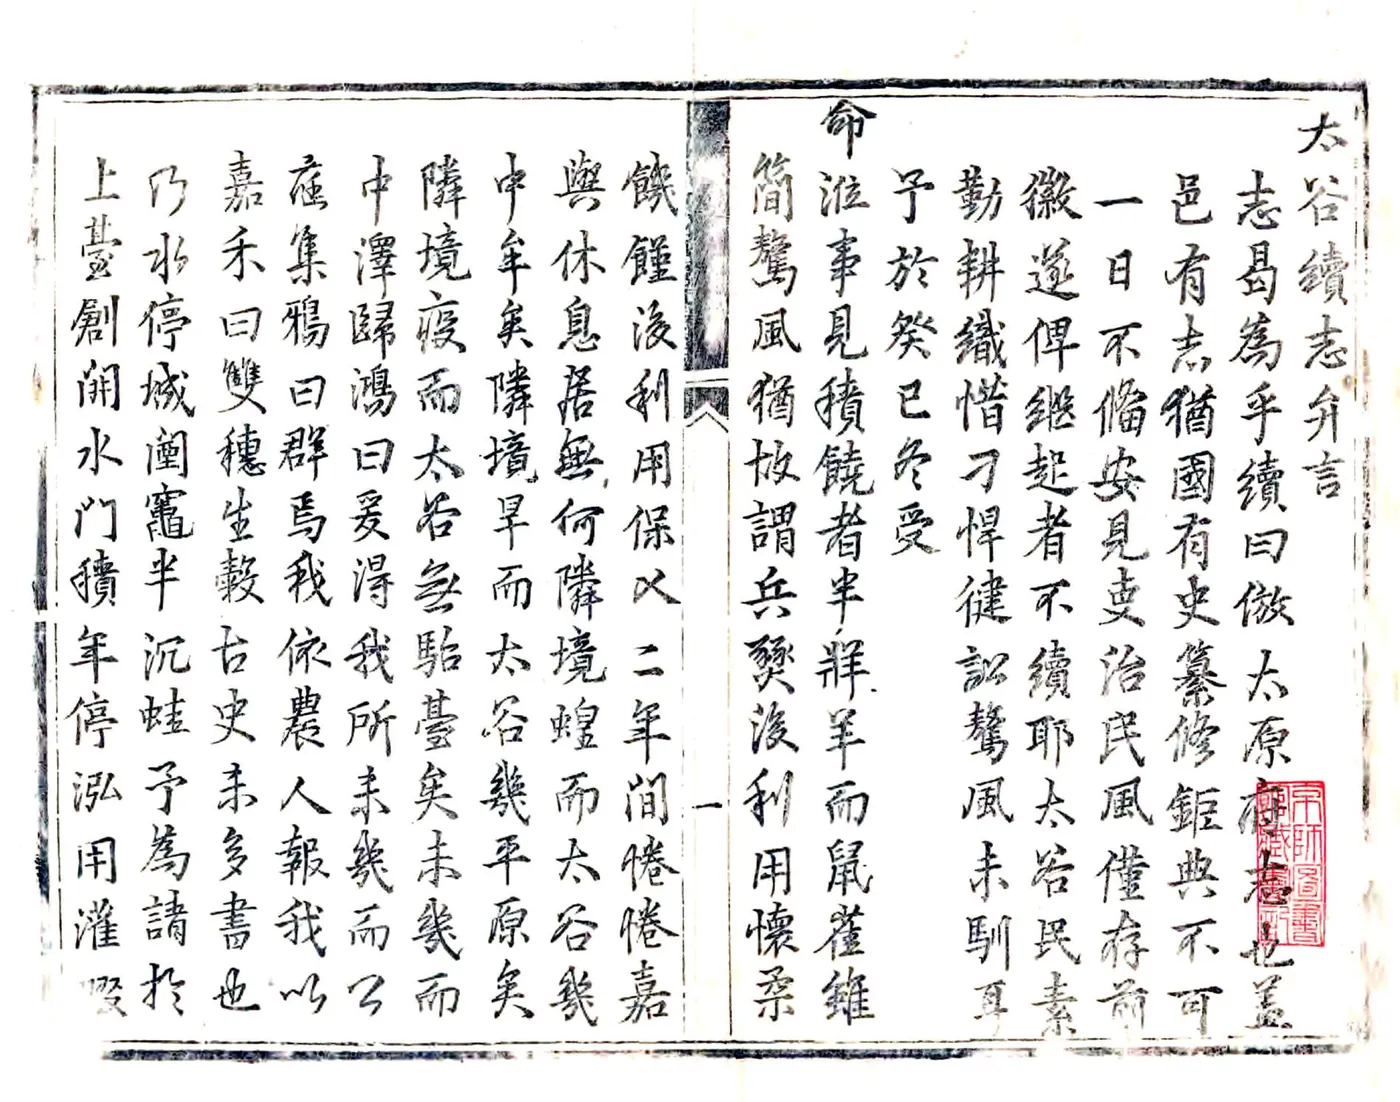 太谷續志弁言
志曷為乎續曰倣太原府志也蓋
邑有志猶國有史纂修鉅典不可
一日不俻安見吏治民風僅存前
徽遂俾継起者不續耶太谷民素
勤耕織惜刁悍健訟驁風未馴耳
予於癸巳冬受
命涖事見積饒者半牂羊而鼠雀雖
簡驁風猶故謂兵燹後利用懷柔
饑饉後利用保乂二年間惓惓嘉
與休息居無何隣境蝗而太谷幾
中牟矣隣境旱而太谷幾平原矣
隣境疫而太谷無駘臺矣未幾而
中澤歸鴻曰爰得我所未幾而公
庭集鴉曰群焉我依農人報我以
嘉禾曰雙穗生穀古史未多書也
乃水停城闉竈半沉蛙予為請於
上臺創開水門積年停泓用灌畷
一
京師圖書